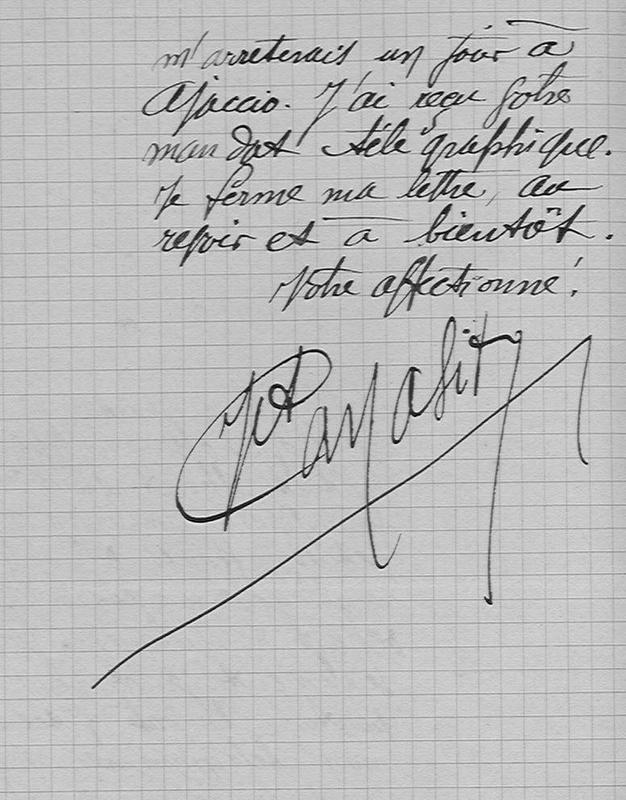 m'arreterais un jour à
Ajaccio. J'ai reçu votre
mandat télégraphique.
Je ferme ma lettre, au
revoir et a bientôt.
Votre affectionné!